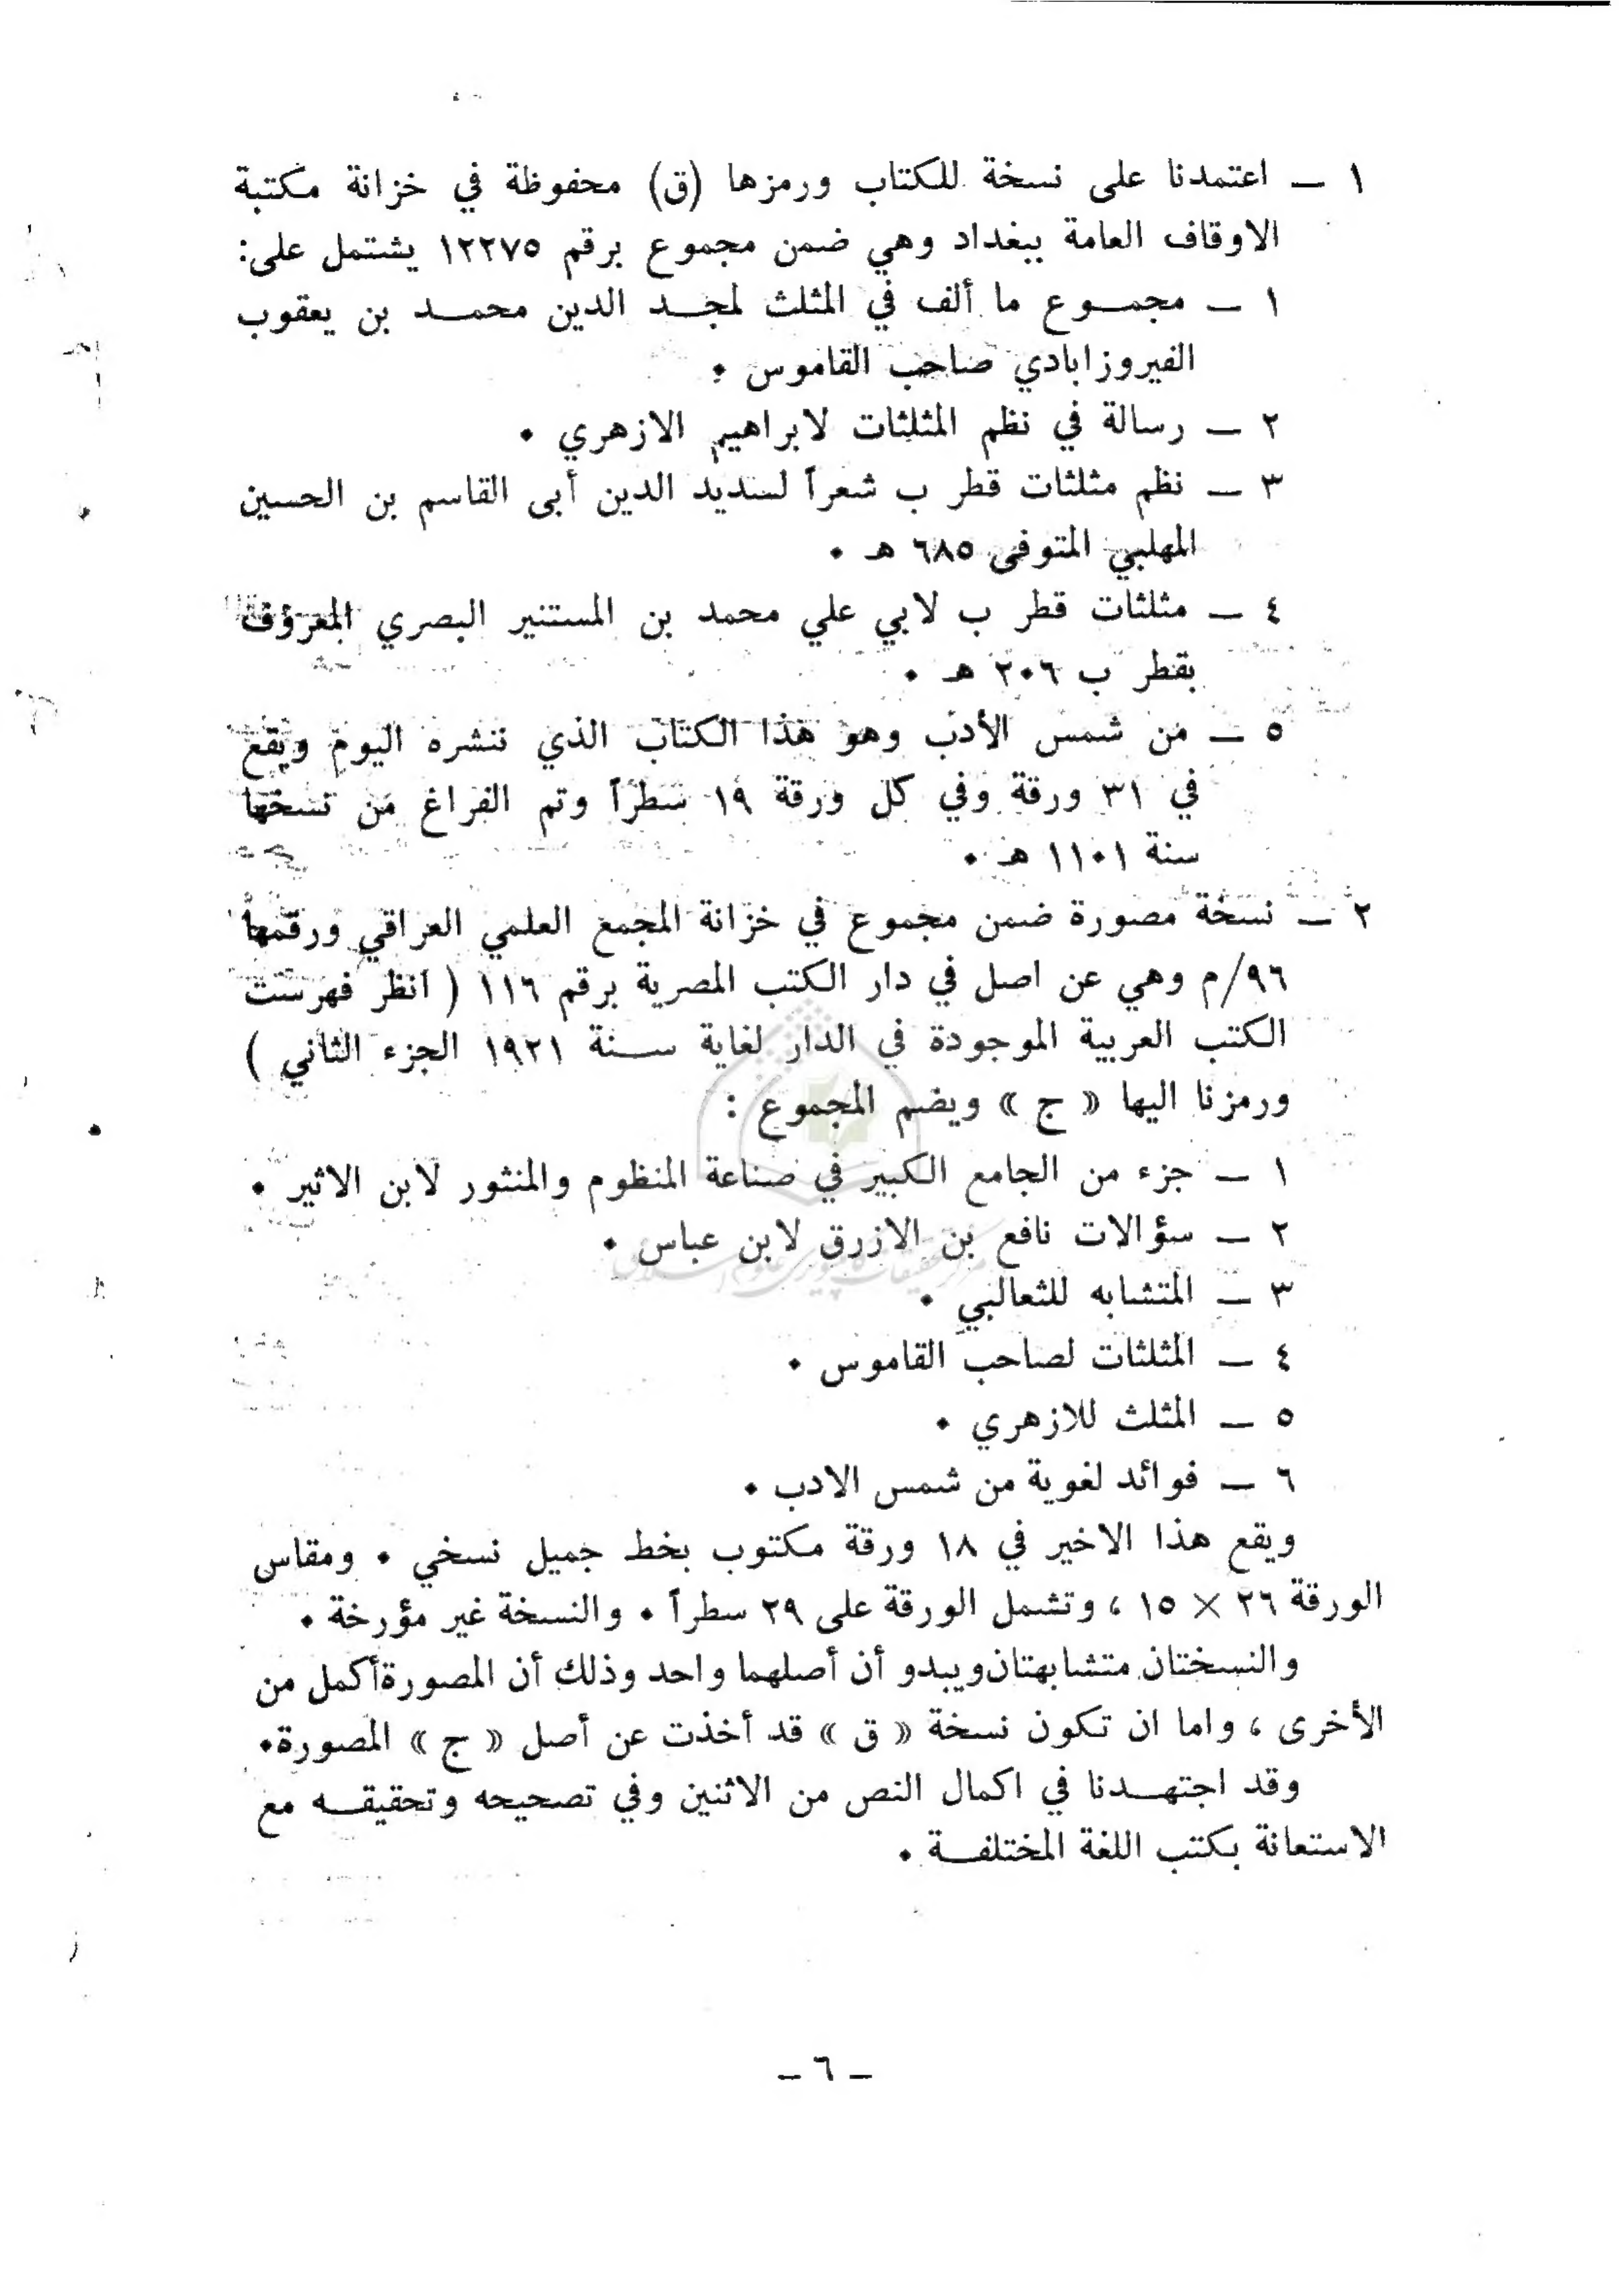 ١ ــ اعتمدنا على نسخة للكتاب ورمزها (ق) محفوظة في خزانة مكتبة
الاوقاف العامة ببغداد وهي ضمن مجموع برقم ١٢٢٧٥ يشتمل على:
١ ــ مجمــوع ما ألف في المثلث لمجــد الدين محمــد بن يعقوب
الفيروزابادي صاحب القاموس ٠
٢ ــ رسالة في نظم المثلثات لابراهيم الازهري ٠
٣ ــ نظم مثلثات قطر ب شعراً لسديد الدين أبى القاسم بن الحسين
المهلبي المتوفى ٦٨٥ هـ ٠
٤ ــ مثلثات قطر ب لابي علي محمد بن المستنير البصري المعروف
بقطر ب ٢٠٦ هـ ٠
٥ ــ من شمس الأدب وهو هذا الكتاب الذي ننشره اليوم ويقع
في ٣١ ورقة وفي كل ورقة ١٩ سطراً وتم الفراغ من نسخها
سنة ١١٠١ هـ ٠
٢ ــ نسخة مصورة ضمن مجموع في خزانة المجمع العلمي العراقي ورقمها
٩٦/م وهي عن اصل في دار الكتب المصرية برقم ١١٦ ( انظر فهرست
الكتب العربية الموجودة في الدار لغاية ســنة ١٩٢١ الجزء الثاني )
ورمزنا اليها « ج » ويضم المجموع :
١ ــ جزء من الجامع الكبير في صناعة المنظوم والمنثور لابن الاثير ٠
٢ ــ سؤالات نافع بن الازرق لابن عباس ٠
٣ ــ المتشابه للثعالبي ٠
٤ ــ المثلثات لصاحب القاموس ٠
٥ ــ المثلث للازهري ٠
٦ ــ فوائد لغوية من شمس الادب ٠
ويقع هذا الاخير في ١٨ ورقة مكتوب بخط جميل نسخي ٠ ومقاس
الورقة ٢٦ × ١٥ ، وتشمل الورقة على ٢٩ سطراً ٠ والنسخة غير مؤرخة ٠
والنسختان متشابهتان ويبدو أن أصلهما واحد وذلك أن المصورة أكمل من
الأخرى ، واما ان تكون نسخة « ق » قد أخذت عن أصل « ج » المصورة٠
وقد اجتهــدنا في اكمال النص من الاثنين وفي تصحيحه وتحقيقــه مع
الاستعانة بكتب اللغة المختلفــة ٠
ــ ٦ ــ